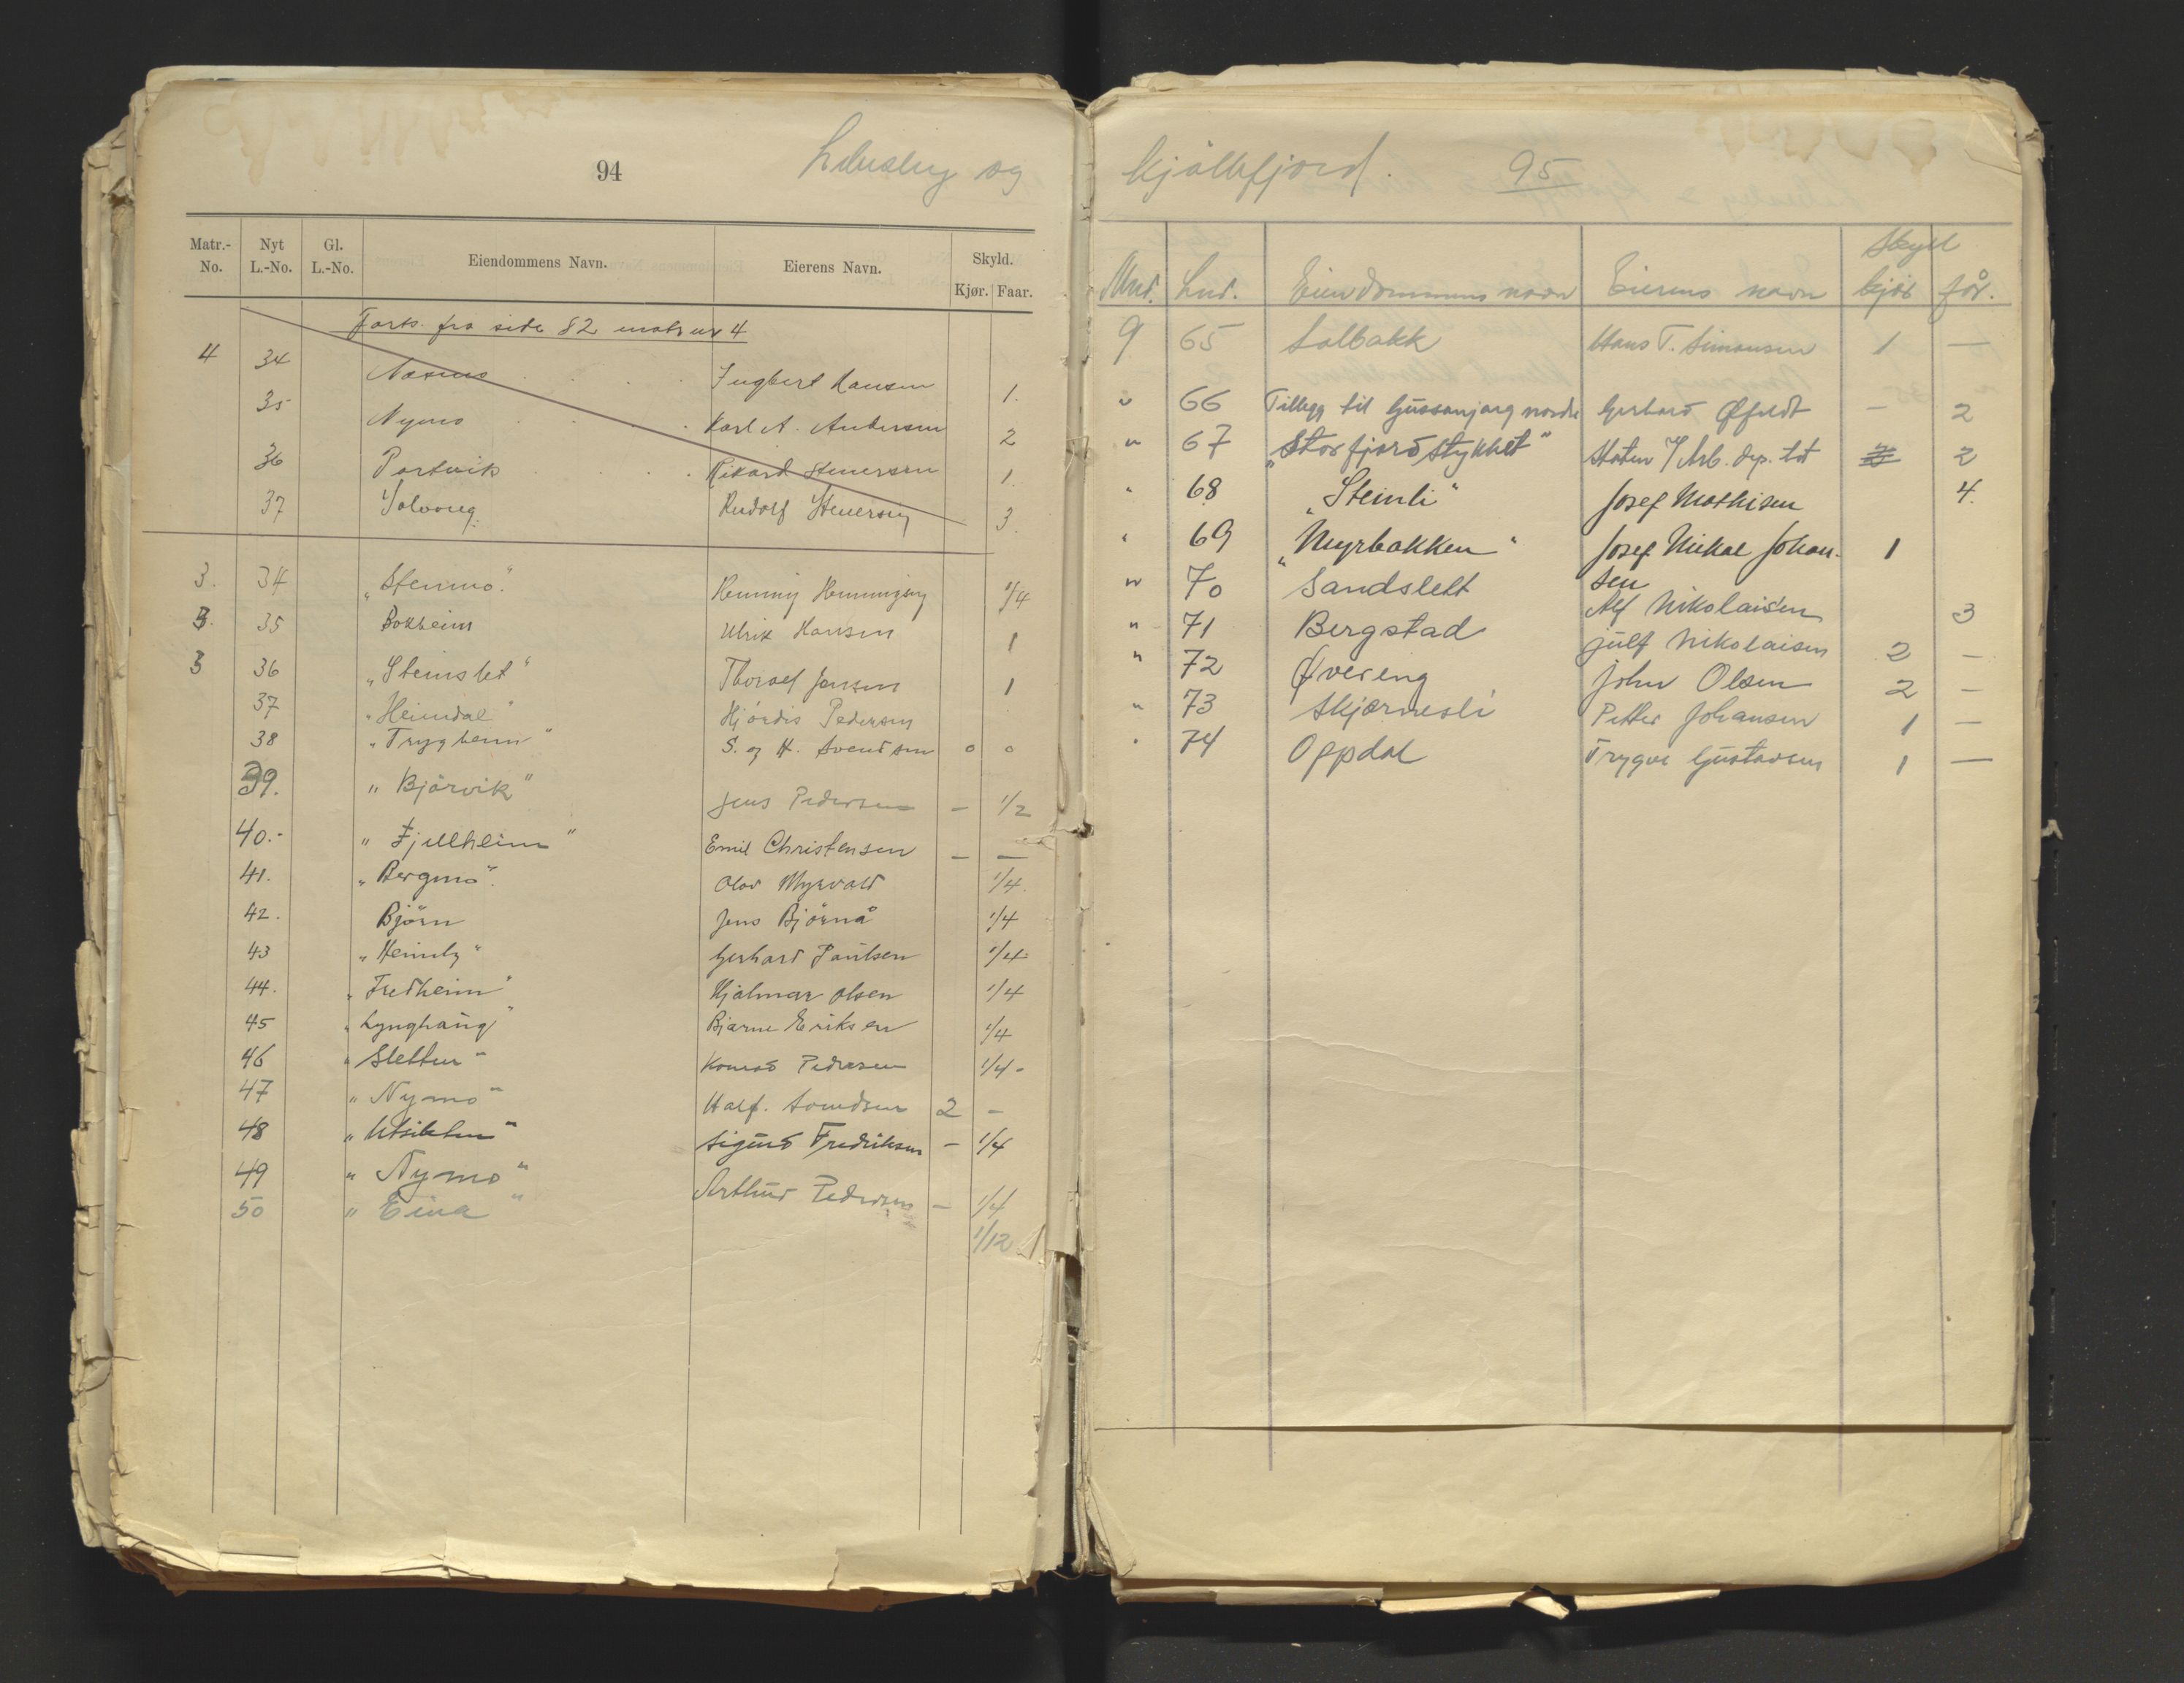 94
Lebesby og
Matr.-No. Nyt L.-No. Gl. L.-No. Eiendommens Navn. Eierens Navn. Skyld. Kjør. Faar.
Forts. fra side 82 matr nr 4
4 34 Næsmo Ingbert Hansen 1.
35 Nymo Karl A. Andersen 2
36 Portvik Rikard Stenersen 1.
37 Solvang Rudolf Stenersen 3.
3. 34 „Stenmo" Henning Henningsen 1/4
3. 35 Boxheim Ulrik Hansen 1
3 36 „Steinslet" Thoralf Jensen 1
37 „Heimdal" Hjördis Pedersen
38 „Trygheim" S. og H. Svendsen 0 0
39. „Björvik" Jens Pedersen – 1/2
40.- „Fjellheim" Emil Christensen – –
41. „Bergmo". Olav Myrvold 1/4.
42. Björn Jens Björnå 1/4
43 „Heimly" Gerhard Paulsen 1/4
44. „Fredheim" Hjalmar Olsen 1/4
45 „Lynghaug" Bjarne Eriksen 1/4
46 „Sletten" Konrad Pedersen 1/4 -
47 „Nymo" Half. Svendsen 2 –
48 „Utsikten" Sigurd Fredriksen – 1/4
49 „Nymo" Arthur Pedersen – 1/4
50 „Eina" 1/12
Kjöllefjord. 95
Mnr. Lnr. Eiendommens navn Eierens navn Skyld kjör får.
9 65 Solbakk Hans T. Simonsen 1 —
" 66 Tillegg til Gussanjarg nordre Gerhard Øfeldt – 2
" 67 „Storfjordstykket" Staten v/ Arb. dep. tot 2
" 68 „Steinli" Josef Mathisen 4.
" 69 „Myrbakken" Josef Mikal Johan-
sen 1
" 70 Sandslett Alf Nikolaisen 3
" 71 Bergstad Julf Nikolaisen 2 –
" 72 Övereng John Olsen 2 –
" 73 Skjærmesli Petter Johansen 1 —
" 74 Oppdal Trygve Gustavsen 1 —